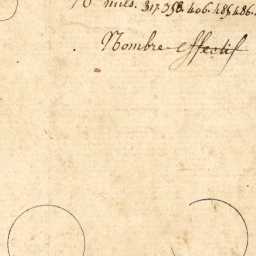 nules. 317. 358. 406. 485. 486.
Nombre effectif